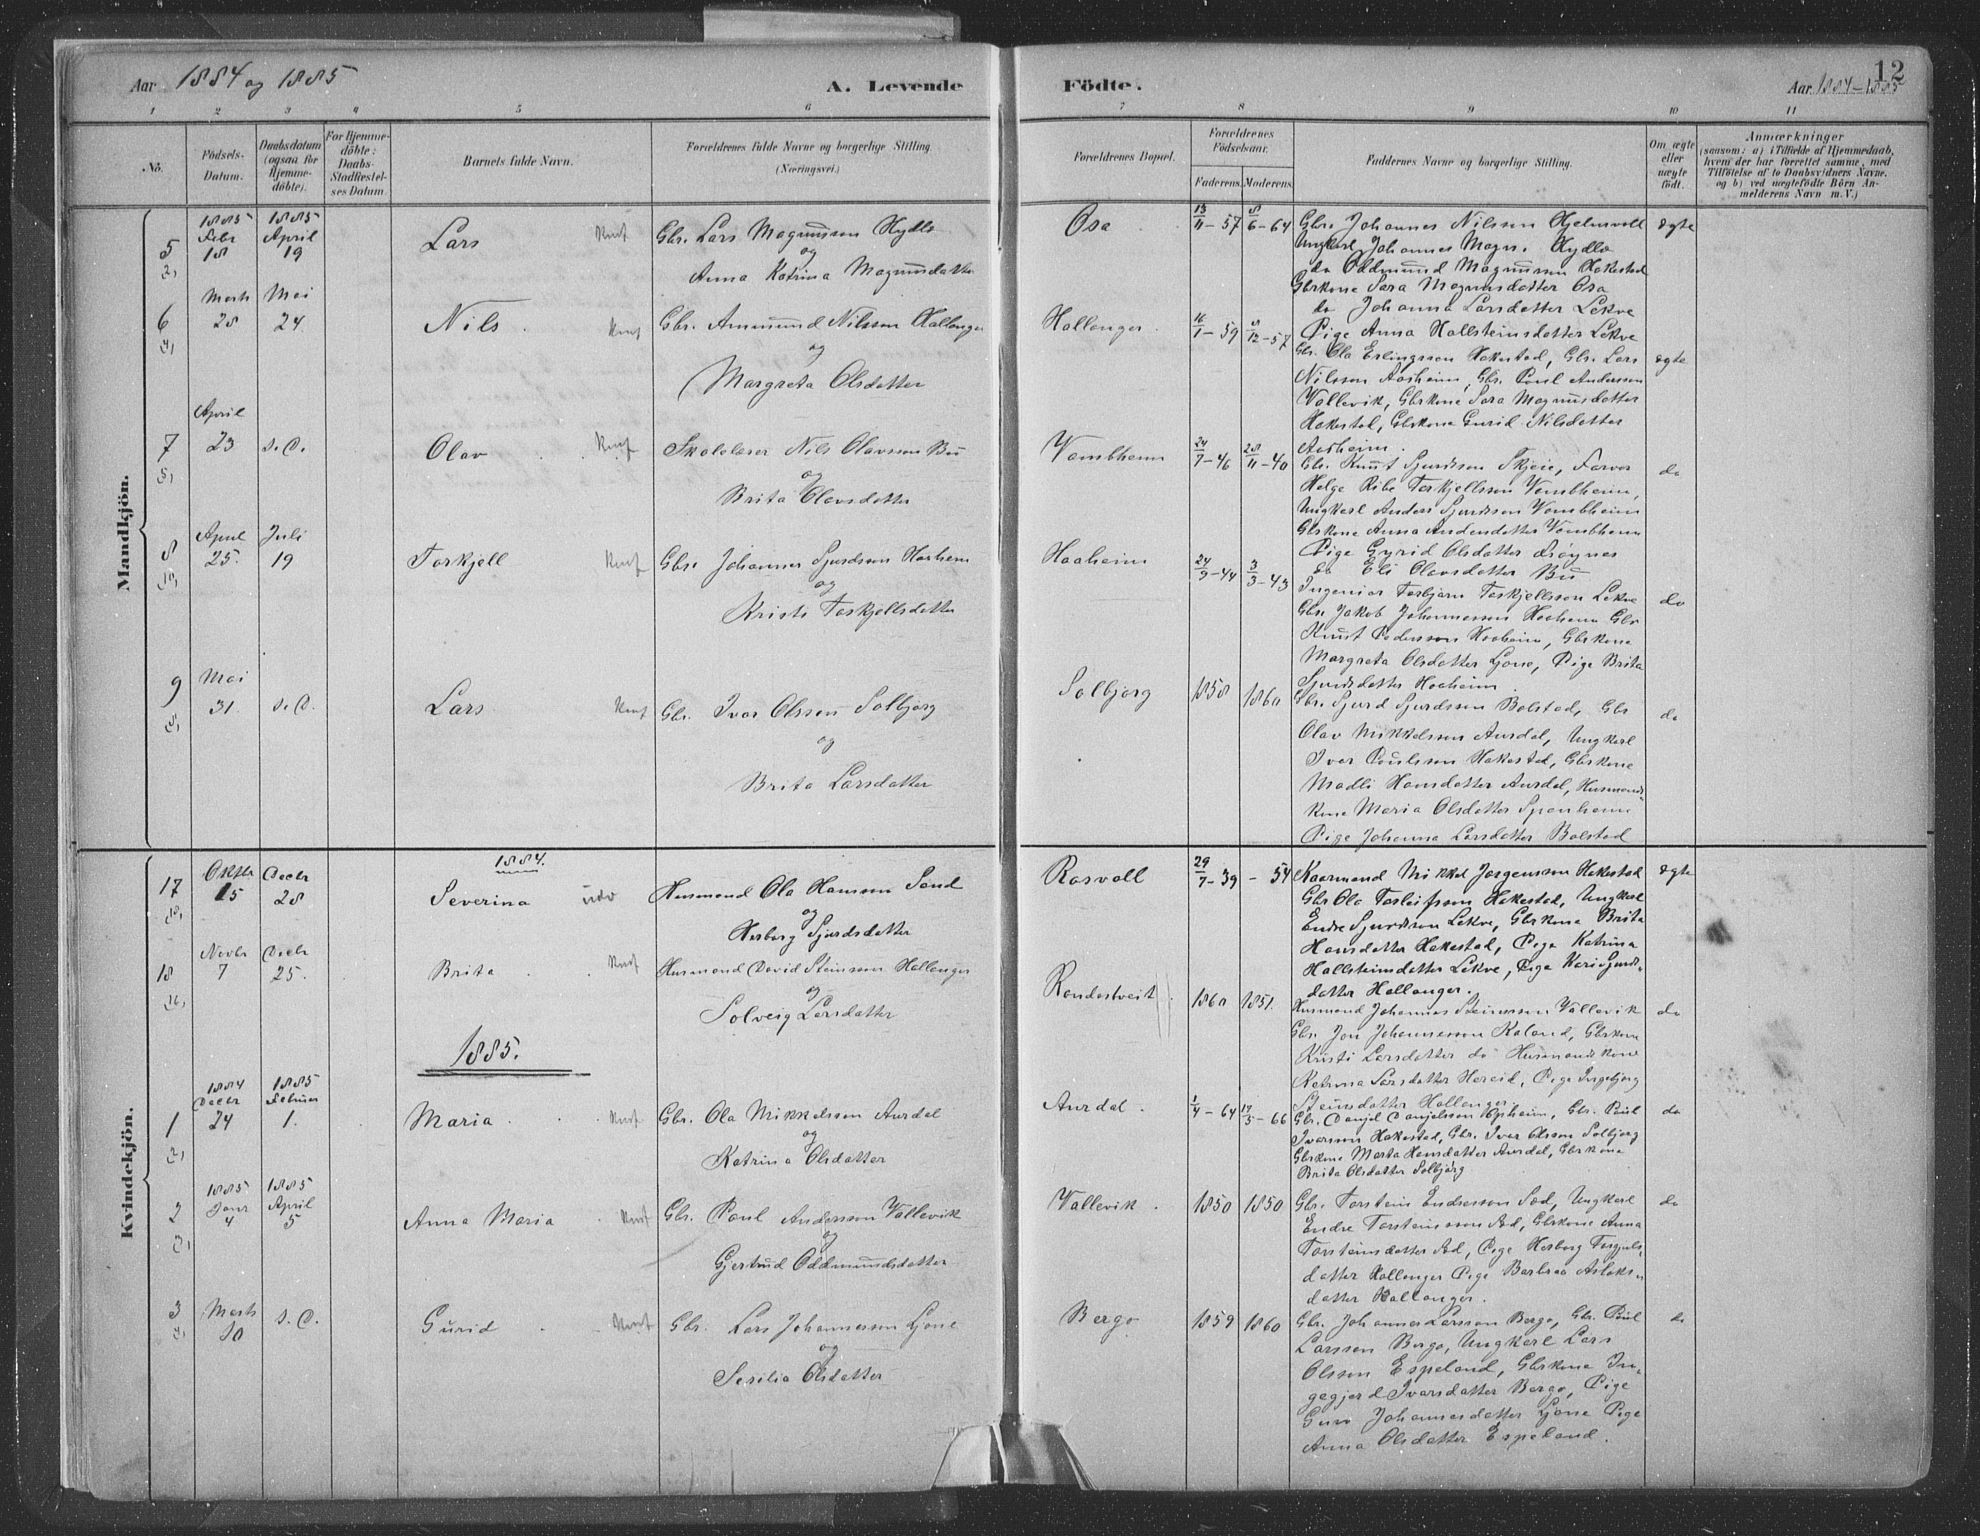 Aar 1884 og 1885
A. Levende
Födte.
Aar 1884–1885
12
1 2 3 4 5 6 7 8 9 10 11
No.
Födsels-Datum.
Daabsdatum (ogsaa for Hjemme-döbte).
For Hjemme-döbte: Daabs-Stadfæstelses Datum.
Barnets fulde Navn.
Forældrenes fulde Navne og borgerlige Stilling (Næringsvei.)
Forældrenes Bopæl.
Forældrenes Födselsaar.
Faderens. Moderens.
Faddernes Navne og borgerlige Stilling.
Om ægte eller uægte födt.
Anmærkninger
(saasom: a) i Tilfælde af Hjemmedaab,
hvem der har forrettet samme, med
Tilföielse af to Daabsvidners Navne,
og b) ved uægtefödte Börn An-
melderens Navn m.V.)
Mandkjön.
5 1885 Febr 18 1885 April 19 Lars
Gbr. Lars Magnusson Hydle
og
Anna Katrina Magnusdatter
Osa 13/11–57 8/6–64
Gbr. Johannes Nilsson Hjelmevoll
Ungkarl Johannes Magn. Hydle
do Oddmund Magnusson Hakestad
Gbrkone Sara Magnusdatter Osa
do Johanna Larsdatter Lekve
Pige Anna Hallsteinsdatter Lekve
ægte
6 Marts 28 Mai 24 Nils
Gbr. Ammund Nilsson Hallanger
og
Margreta Olsdatter
Hallanger. 16/1–59 8/12–57
Gbr. Ola Erlingsson Hakestad, Gbr. Lars
Nilsson Aasheim, Gbr. Poul Andersson
Vallevik, Gbrkone Sara Magnusdatter
Hakestad, Gbrkone Gurid Nilsdatter
Aasheim.
ægte
7 April 23 s.D. Olav
Skolelærer Nils Olavsson Bu
og
Brita Olavsdatter
Vambheim 24/7–46 28/11–40
Gbr. Knut Sjurdsson Skjeie, Farver
Helge Ribe Torkjellsson Vambheim,
Ungkarl Anders Sjurdsson Vambheim
Gbrkone Anna Andersdatter Vambheim
Pige Gyrid Olsdatter Djönes
do Eli Olavsdatter Bu
do
8 April 25. Juli 19 Torkjell
Gbr. Johannes Sjurdson Haaheim
og
Kristi Torkjellsdatter
Haaheim 24/9–44 3/3–43
Ingeniør Torbjørn Torkjellsson Lekve
Gbr. Jakob Johannesson Haaheim Gbr
Knut Pedersson Haaheim, Gbrkone
Margreta Olsdatter Ljone, Pige Brita
Sjursdatter Haaheim.
do
9 Mai 31. s.D. Lars
Gbr. Ivar Olsson Solbjørg
og
Brita Larsdatter
Solbjørg 1858 1860
Gbr. Sjurd Sjurdsson Bolstad, Gbr
Olav Mikkelsson Aurdal, Ungkarl
Iver Poulsson Hakestad, Gbrkone
Madli Hansdatter Aurdal, Husmands-
kone Maria Olsdatter Spanheim
Pige Johanna Larsdatter Bolstad
do
Kvindekjön.
1884.
17 Oktbr 15 Decbr 28 Severina udv
Husmand Ola Hansson Sand
og
Herborg Sjurdsdatter
Rosvoll 29/7–39 –54
Kaarmand Mikkel Jørgensson Hakestad
Gbr Ola Torleifsson Hakestad, Ungkarl
Endre Sjurdsson Lekve, Gbrkone Brita
Hansdatter Hakestad, Pige Katrina
Hallsteinsdatter Lekve, Pige Kari Sjurds-
datter Hallanger.
ægte
18 Novbr 7 Decbr 25. Brita
Husmand David Steinsson Hallanger
og
Solveig Larsdatter
Rondestveit 1860 1851.
Husmand Johannes Steinsson Vallevik
Gbr. Jon Johannesson Kaland, Gbrkone
Kristi Larsdatter do Husmandskone
Katrina Larsdatter Hereid, Pige Ingebjørg
Steinsdatter Hallanger.
do
1885.
1 1884 Decbr 24 1885 Februar 1. Maria
Gbr. Ola Mikkelsson Aurdal
og
Katrina Olsdatter
Aurdal. 1/4–64 17/3–66
Gbr. Danjel Danjelsson Opheim, Gbr. Poul
Iversson Hakestad, Gbr. Iver Olsson Solbjørg
Gbrkone Marta Hansdatter Aurdal, Gbrkone
Brita Olsdatter Solbjørg
do
2 1885 Janr 4 1885 April 5 Anna Maria
Gbr. Poul Andersson Vallevik
og
Gjertrud Oddmundsdatter
Vallevik. 1850 1850
Gbr. Torstein Endresson Sæd, Ungkarl
Endre Torsteinsson Sæd, Gbrkone Anna
Torsteinsdatter Sæd, Pige Herborg Torgils-
datter Hallanger Pige Barbraa Aslaks-
datter Hallanger.
do
3 Marts 10 s.D. Gurid
Gbr. Lars Johannesson Ljone
og
Sesilia Olsdatter
Bergo 1859 1860
Gbr. Johannes Larsson Bergo, Gbr. Poul
Larsson Bergo, Ungkarl Lars
Olsson Espeland, Gbrkone In-
gegjerd Ivarsdatter Bergo, Pige
Guro Johannesdatter Ljone Pige
Anna Olsdatter Espeland.
do